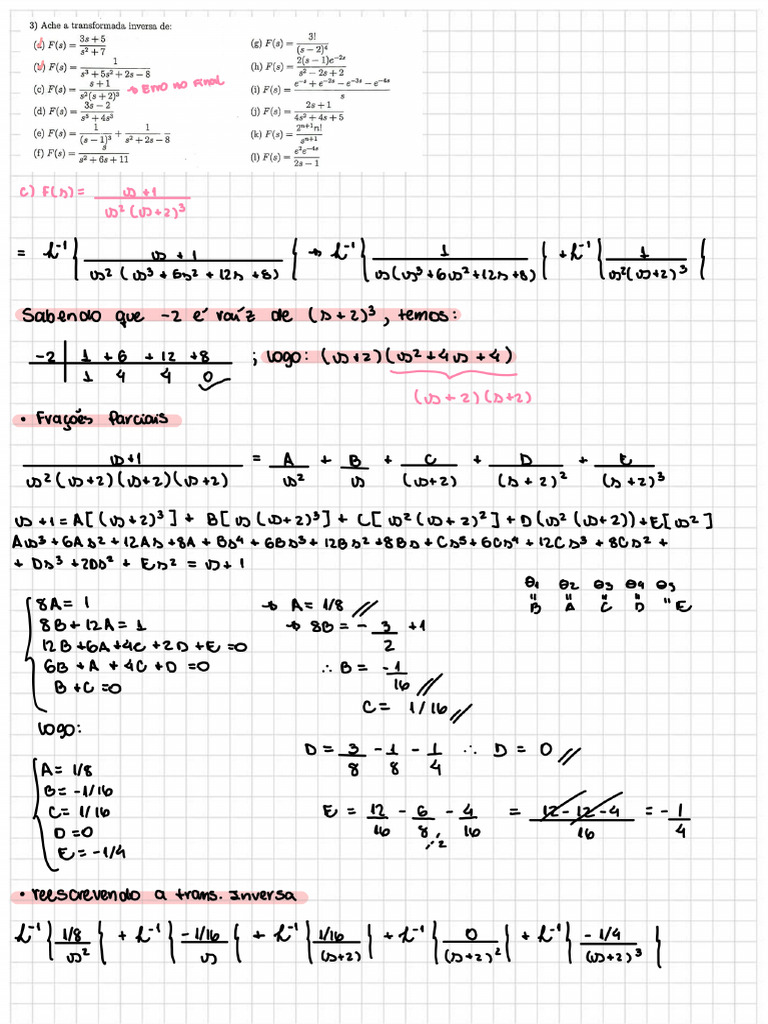 3) Ache a transformada inversa de:
(a) F(s) = (3s + 5)/(s² + 7)
(b) F(s) = 1/(s³ + 5s² + 2s − 8)
(c) F(s) = (s + 1)/(s²(s + 2)³) → Erro no Final
(d) F(s) = (3s − 2)/(s⁵ + 4s³)
(e) F(s) = 1/(s − 1)³ + 1/(s² + 2s − 8)
(f) F(s) = s/(s² + 6s + 11)
(g) F(s) = 3!/(s − 2)⁴
(h) F(s) = 2(s − 1)e⁻²ˢ/(s² − 2s + 2)
(i) F(s) = (e⁻ˢ + e⁻²ˢ − e⁻³ˢ − e⁻⁴ˢ)/s
(j) F(s) = (2s + 1)/(4s² + 4s + 5)
(k) F(s) = 2ⁿ⁺¹n!/sⁿ⁺¹
(l) F(s) = e²e⁻⁴ˢ/(2s − 1)
c) F(s) = (s + 1)/(s²(s+2)³)
= L⁻¹{(s + 1)/(s²(s³ + 6s² + 12s + 8))} → L⁻¹{1/(s(s³+6s²+12s+8))} + L⁻¹{1/(s²(s+2)³)}
Sabendo que -2 é raíz de (s+2)³, temos:
-2 | 1 + 6 + 12 + 8 ; logo: (s+2)(s²+4s+4)
1 4 4 0
(s+2)(s+2)
• Frações Parciais
(s+1)/(s²(s+2)(s+2)(s+2)) = A/s² + B/s + C/(s+2) + D/(s+2)² + E/(s+2)³
s+1 = A[(s+2)³] + B[s(s+2)³] + C[s²(s+2)²] + D(s²(s+2)) + E[s²]
As³ + 6As² + 12As + 8A + Bs⁴ + 6Bs³ + 12Bs² + 8Bs + Cs⁵ + 6Cs⁴ + 12Cs³ + 8Cs² +
+ Ds³ + 2Ds² + Es² = s + 1
θ1 θ2 θ3 θ4 θ5
" " " " "
B A C D E
8A = 1 → A = 1/8
8B + 12A = 1 → 8B = -3/2 + 1
12B + 6A + 4C + 2D + E = 0
6B + A + 4C + D = 0 ∴ B = -1/16
B + C = 0
C = 1/16
logo:
D = 3/8 - 1/8 - 1/4 ∴ D = 0
A = 1/8
B = -1/16
C = 1/16
D = 0
E = -1/4
E = 12/16 - 6/8 - 4/16 = (12 - 12 - 4)/16 = -1/4
:2
• reescrevendo a trans. Inversa
L⁻¹{(1/8)/s²} + L⁻¹{(-1/16)/s} + L⁻¹{(1/16)/(s+2)} + L⁻¹{0/(s+2)²} + L⁻¹{(-1/4)/(s+2)³}